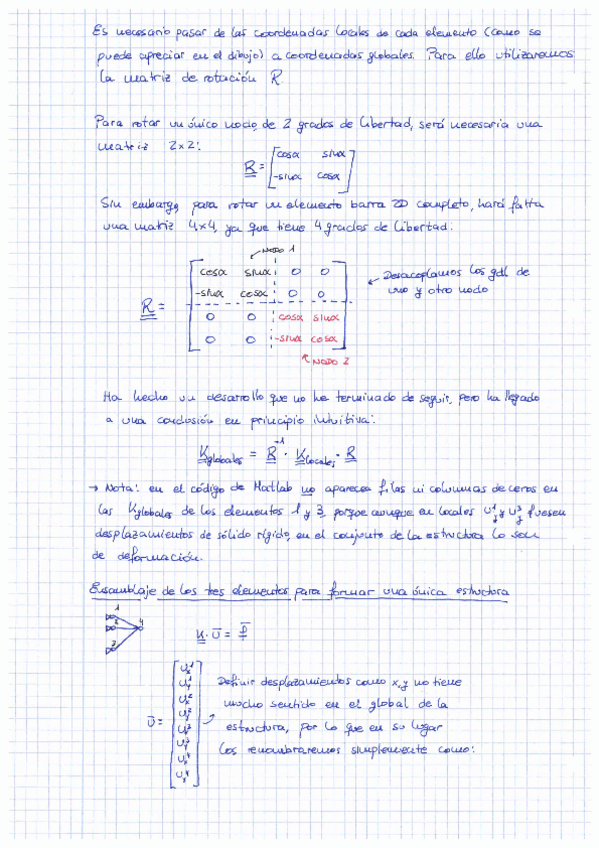 Es necesario pasar de las coordenadas locales de cada elemento (como se
puede apreciar en el dibujo) a coordenadas globales. Para ello utilizaremos
la matriz de rotación R.
Para rotar un único nodo, de 2 grados de libertad, será necesaria una
matriz 2x2:
R = [cosα sinα
-sinα cosα]
Sin embargo, para rotar un elemento barra 2D completo, hará falta
una matriz 4x4, ya que tiene 4 grados de libertad:
NODO 1
cosα sinα 0 0
-sinα cosα 0 0
R =
0 0 cosα sinα
0 0 -sinα cosα
NODO 2
← Desacoplamos los gdl de
uno y otro nodo
Ha hecho un desarrollo que no he terminado de seguir, pero ha llegado
a una conclusión en principio intuitiva:
K globales = R⁻¹ · K locales · R
→ Nota: en el código de Matlab no aparecen filas ni columnas de ceros en
las K globales de los elementos 1 y 3, porque aunque en locales u_y^1 y u_y^3 fuesen
desplazamientos de sólido rígido, en el conjunto de la estructura lo son
de deformación.
Ensamblaje de los tres elementos para formar una única estructura
1
2
3
4
K · U = f
U = [u_x^1
u_y^1
u_x^2
u_y^2
u_x^3
u_y^3
u_x^4
u_y^4]
Definir desplazamientos como x,y no tiene
mucho sentido en el global de la
estructura, por lo que en su lugar
los renombraremos simplemente como: